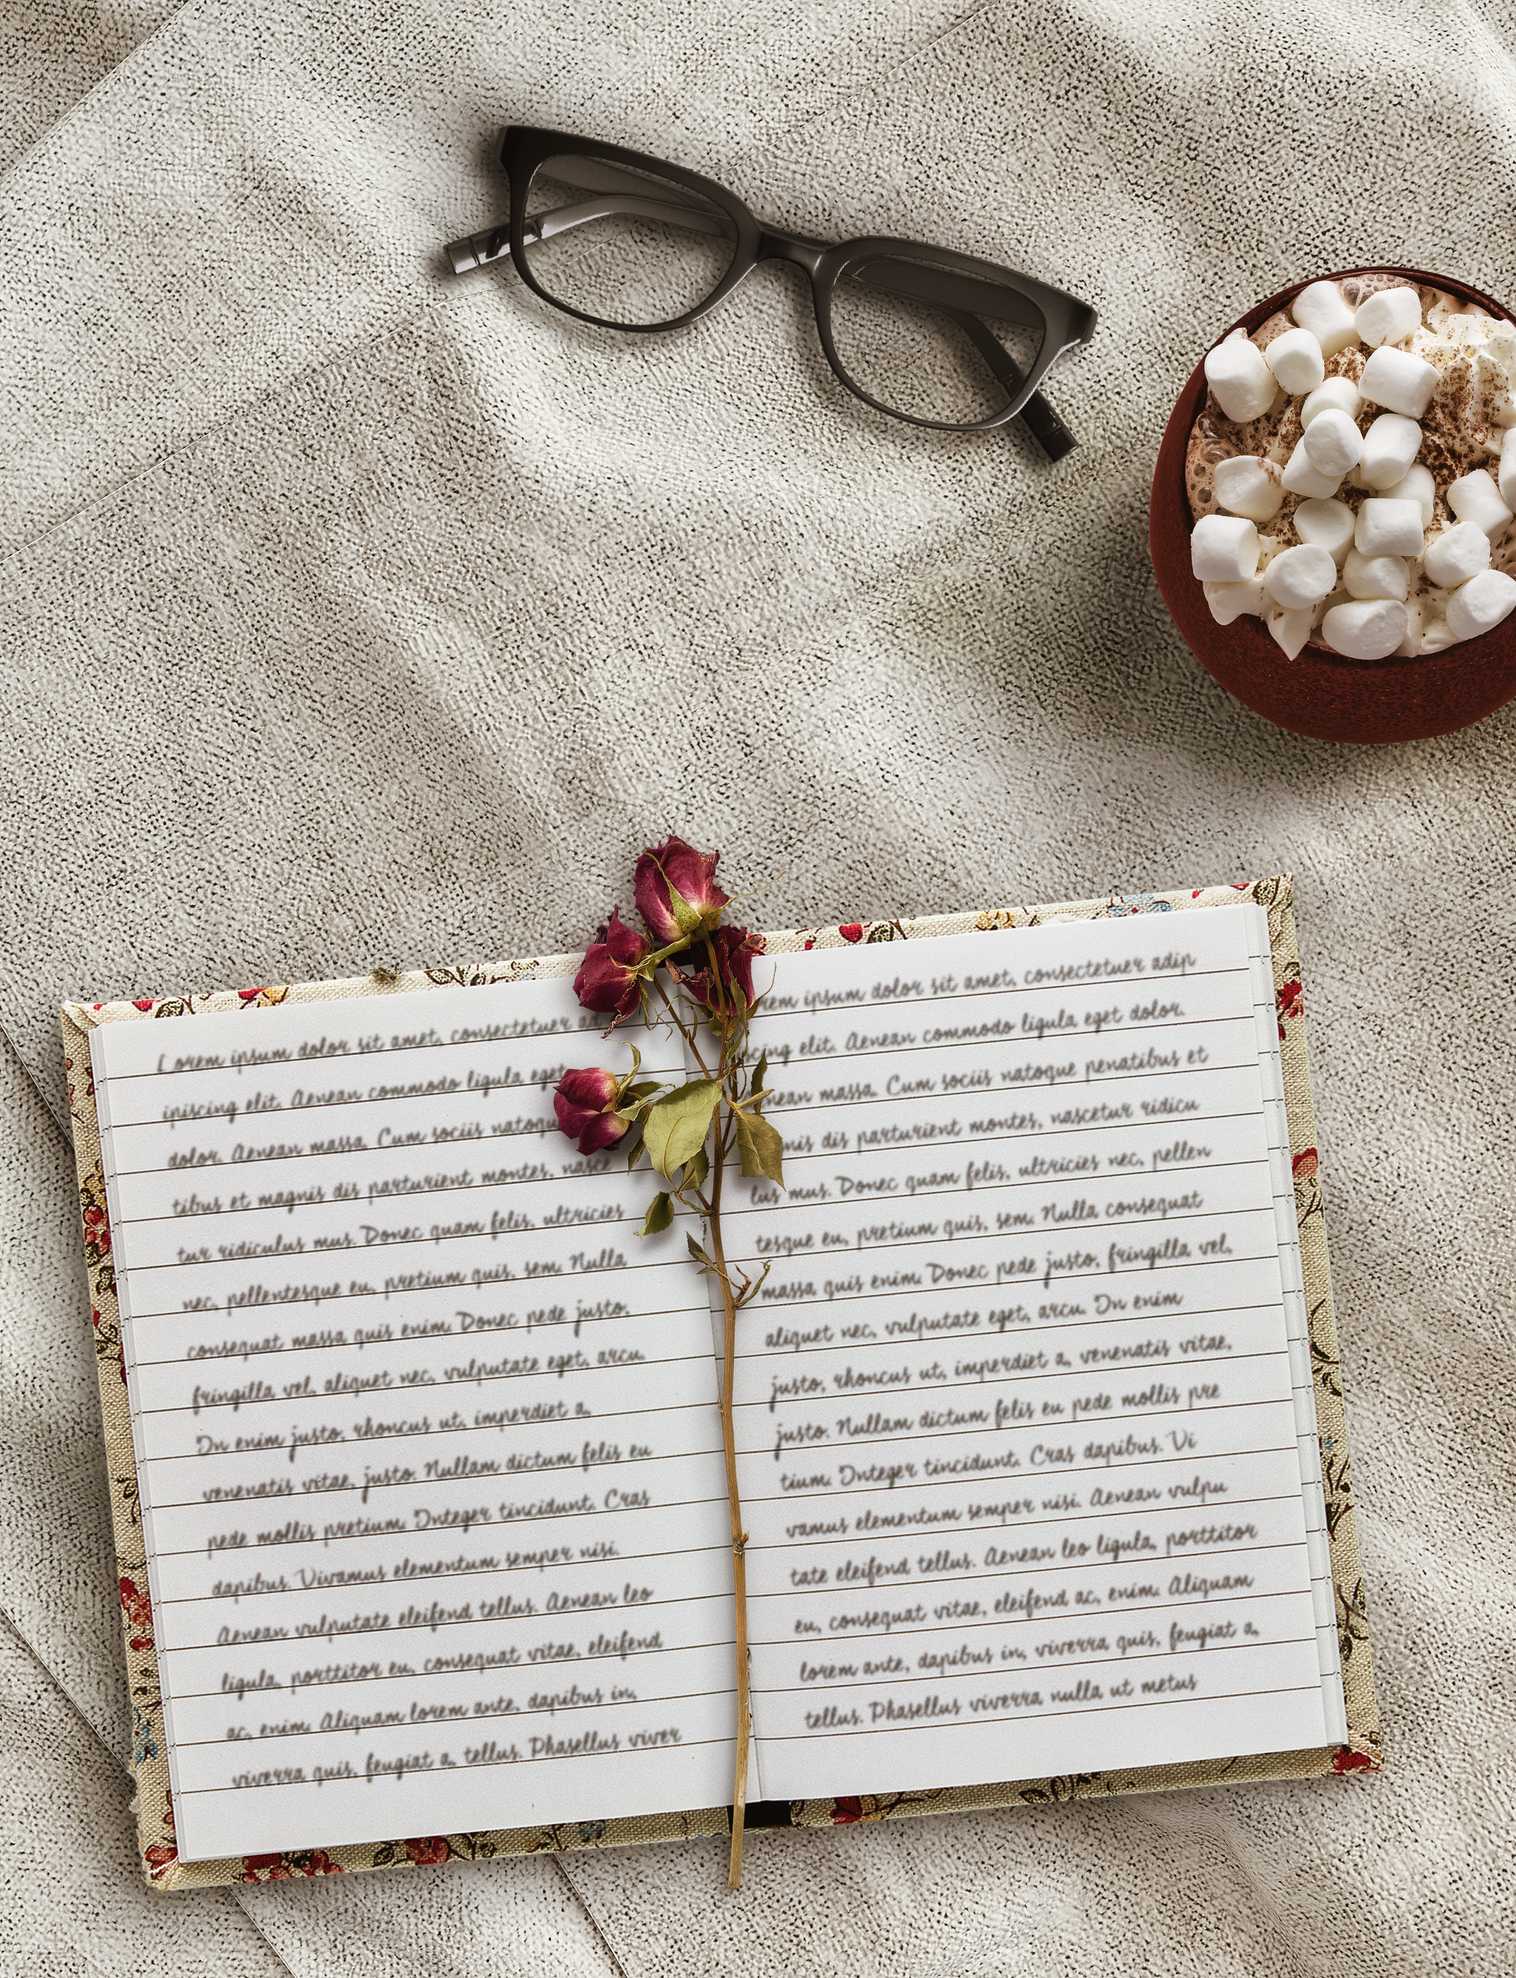 Lorem ipsum dolor sit amet, consectetuer
ipiscing elit. Aenean commodo ligula eget
dolor. Aenean massa. Cum sociis natoqu
tibus et magnis dis parturient montes, nasce
tur ridiculus mus. Donec quam felis, ultricies
nec, pellentesque eu, pretium quis, sem. Nulla
consequat massa quis enim. Donec pede justo,
fringilla vel, aliquet nec, vulputate eget, arcu.
In enim justo, rhoncus ut, imperdiet a,
venenatis vitae, justo. Nullam dictum felis eu
pede mollis pretium. Integer tincidunt. Cras
dapibus. Vivamus elementum semper nisi.
Aenean vulputate eleifend tellus. Aenean leo
ligula, porttitor eu, consequat vitae, eleifend
ac, enim. Aliquam lorem ante, dapibus in,
viverra quis, feugiat a, tellus. Phasellus viver
rem ipsum dolor sit amet, consectetuer adip
iscing elit. Aenean commodo ligula eget dolor.
nean massa. Cum sociis natoque penatibus et
nis dis parturient montes, nascetur ridicu
lus mus. Donec quam felis, ultricies nec, pellen
tesque eu, pretium quis, sem. Nulla consequat
massa quis enim. Donec pede justo, fringilla vel,
aliquet nec, vulputate eget, arcu. In enim
justo, rhoncus ut, imperdiet a, venenatis vitae,
justo. Nullam dictum felis eu pede mollis pre
tium. Integer tincidunt. Cras dapibus. Vi
vamus elementum semper nisi. Aenean vulpu
tate eleifend tellus. Aenean leo ligula, porttitor
eu, consequat vitae, eleifend ac, enim. Aliquam
lorem ante, dapibus in, viverra quis, feugiat a,
tellus. Phasellus viverra nulla ut metus